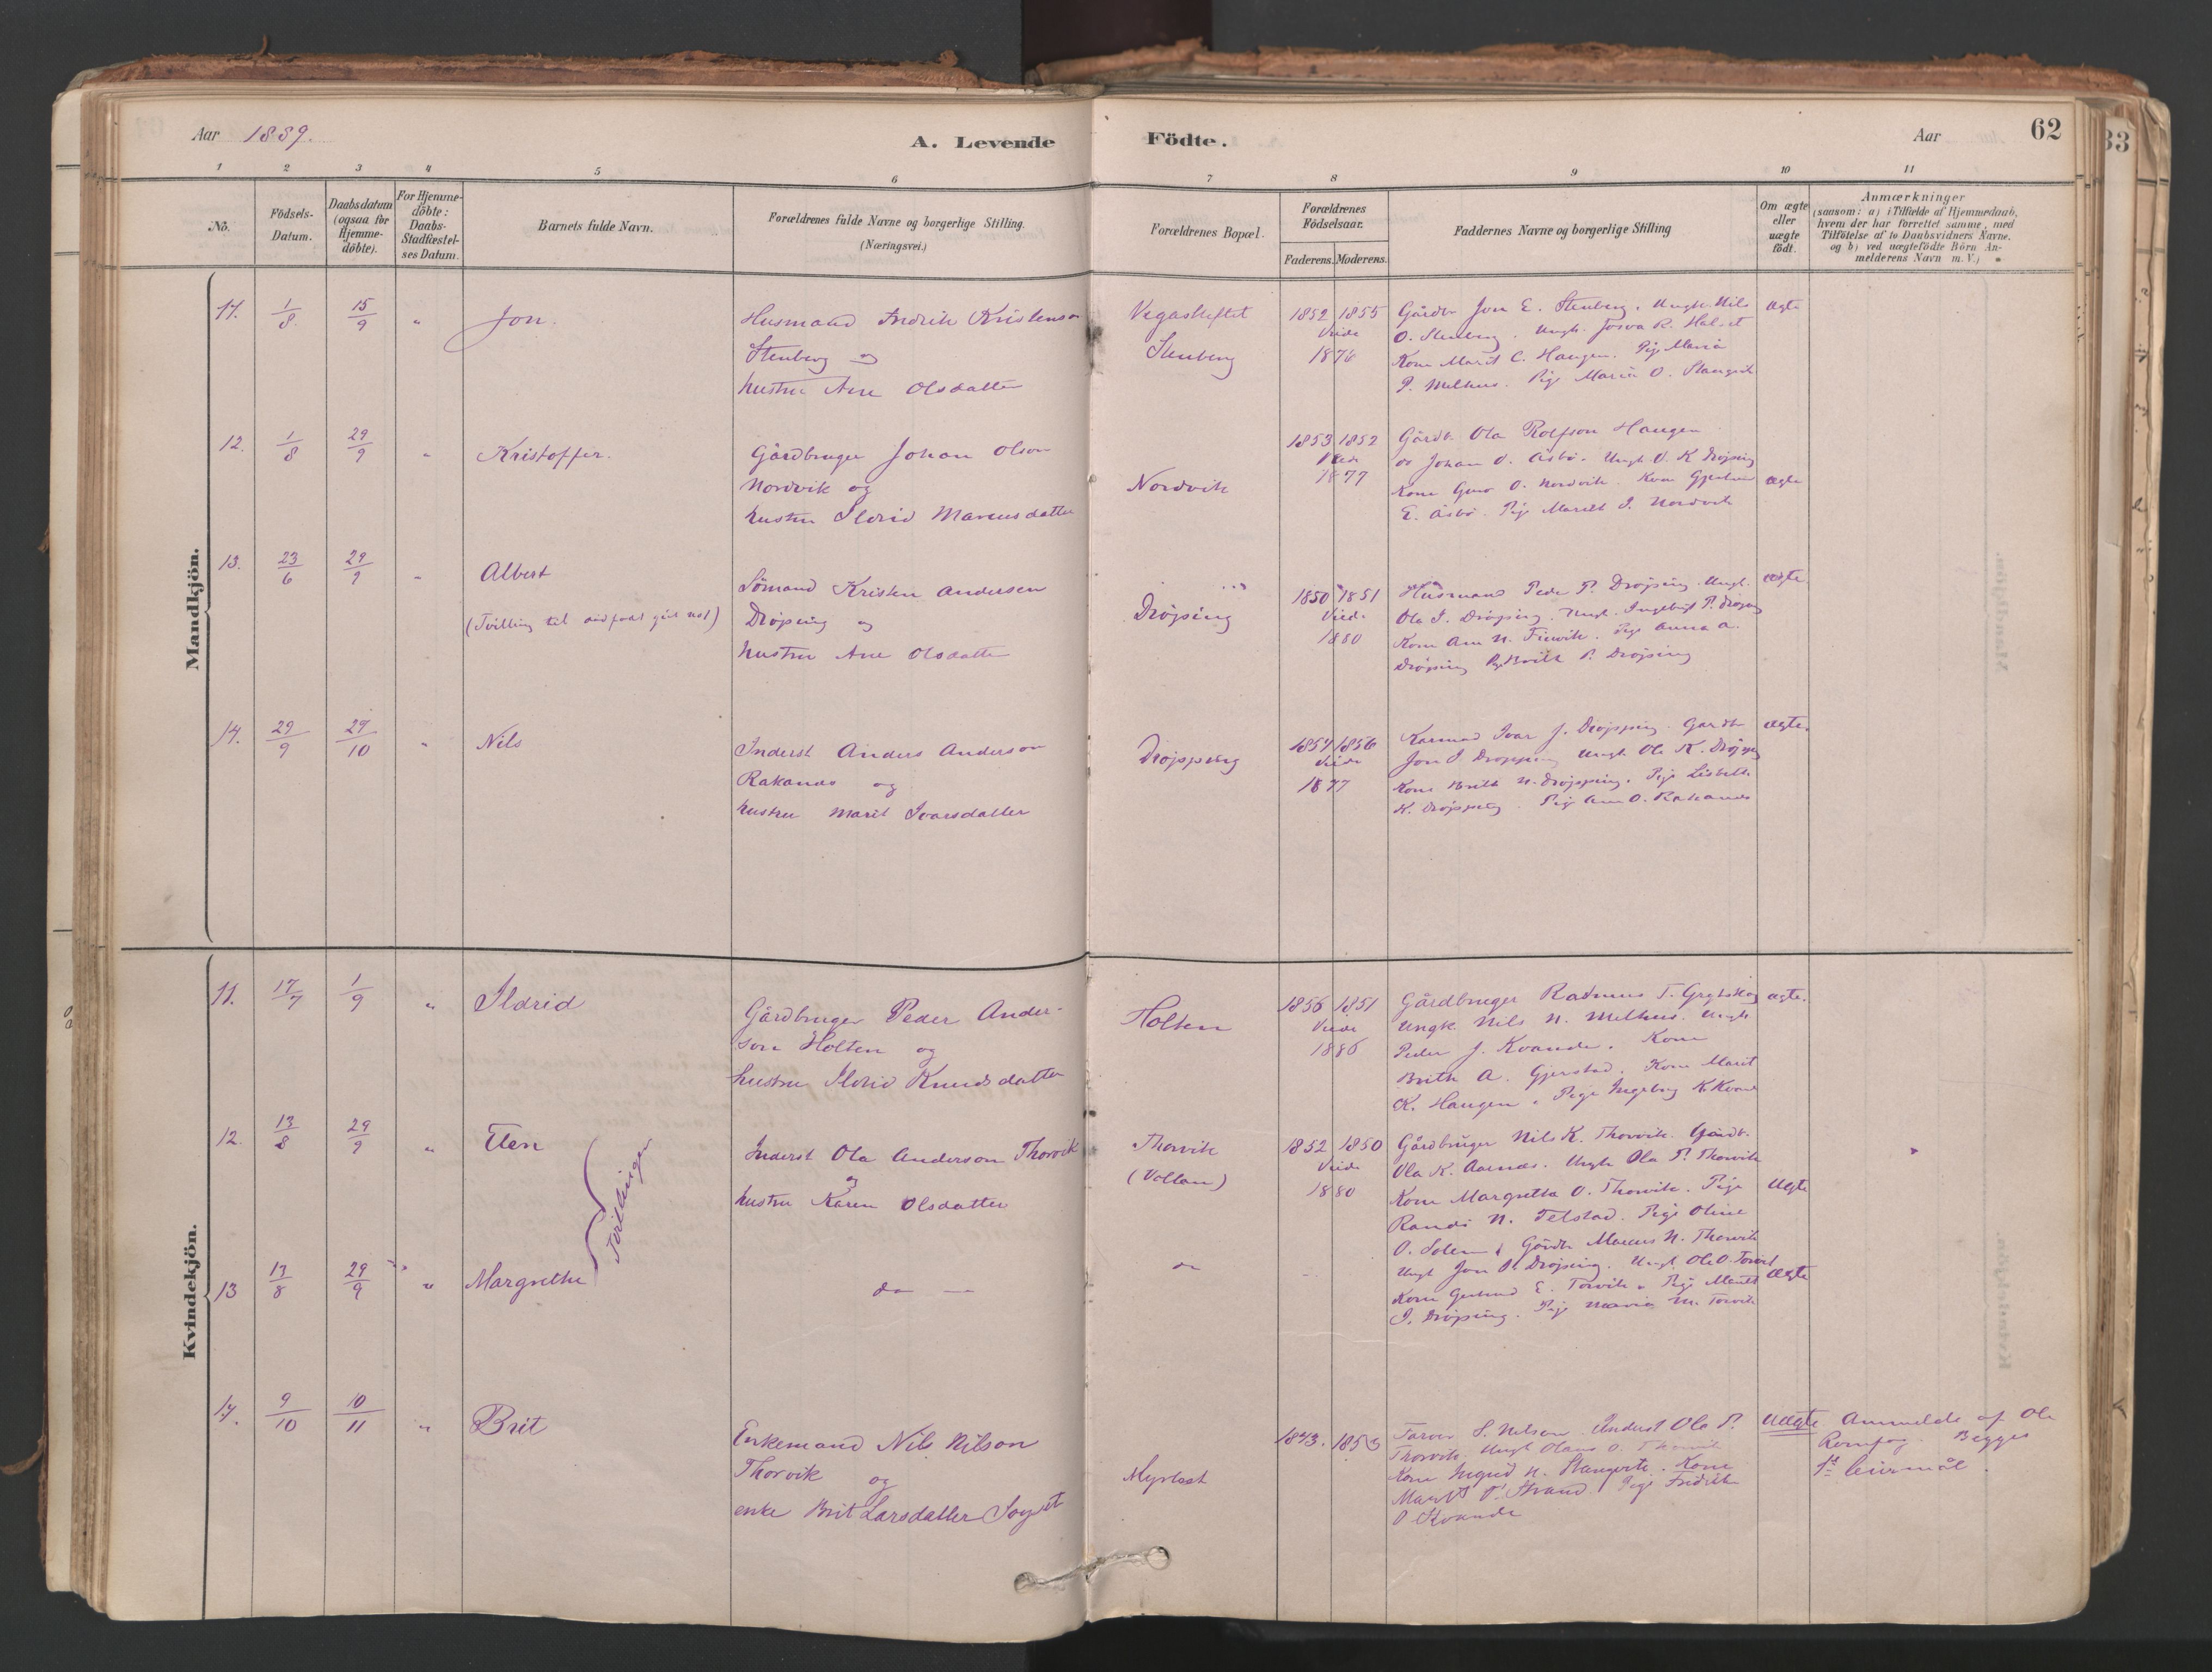 Aar 1889.
A. Levende Födte.
Aar
62
33
1 2 3 4 5 6 7 8 9 10 11
No.
Födsels-Datum.
Daabsdatum (ogsaa for Hjemme-döbte).
For Hjemme-döbte: Daabs-Stadfæstel-ses Datum.
Barnets fulde Navn.
Forældrenes fulde Navne og borgerlige Stilling. (Næringsvei.)
Forældrenes Bopæl.
Forældrenes Födselsaar.
Faderens. Moderens.
Faddernes Navne og borgerlige Stilling
Om ægte eller uægte födt.
Anmærkninger
(saasom: a) i Tilfælde af Hjemmedaab,
hvem der har forrettet samme, med
Tilföielse af to Daabsvidners Navne,
og b) ved uægtefödte Börn An-
melderens Navn m. V.)
Mandkjön.
11. 1/8. 15/9 " Jon.
Husmand Fredrik Kristensen
Stenberg og
hustru Ane Olsdatter
Vegaskiftet
Stenberg
1852 1855
Viede
1876
Gårdbr Jon E. Stenberg. Ungk. Nils
O. Stenberg. Ungk. Josva R. Halset
Kone Marit C. Haugen. Pige Maria
P. Melhus. Pige Maria O. Stangvik
ægte
12. 1/8 29/9 " Kristoffer.
Gårdbruger Johan Olson
Nordvik og
hustru Ildrid Marcusdatter
Nordvik
1853 1852
Viede
1877
Gårdb. Ola Rolfson Haugen
do Johan O. Åsbö. Ungk. O. K. Dröjsing
Kone Guro O. Nordvik. Kone Gjertrud
E. Åsbö. Pige Marit I. Nordvik
ægte
13. 23/6 29/9 " Albert
(Tvilling til dødfødt gut no1)
Sömand Kristen Andersen
Dröjsing og
hustru Ane Olsdatter
Dröjsing
1850 1851
Viede
1880
Husmand Peder P. Dröjsing. Ungk.
Ola I. Dröjsing. Ungk. Ingebrigt P. Dröjsing
Kone Ane N. Tinvik. Pige Anna A.
Dröjsing Pige Brith P. Dröjsing
ægte.
14. 29/9 27/10 " Nils
Inderst Anders Anderson
Rakanes og
hustru Marit Ivarsdatter
Dröjsping
1854 1856
Viede
1877
Ivar J. Dröjsping. Gardbr
Jon I Dröjsping Ungk Ole K. Dröjsping
Kone Brith N. Dröjsping. Pige Lisbeth
K. Dröjsping. Pige Ane O. Rakanes
ægte.
Kvindekjön.
11. 17/7 1/9 " Ildrid
Gårdbruger Peder Ander-
son Holten og
hustru Ildrid Knudsdatter
Holten
1856 1851
Viede
1886
Gårdbruger Rasmus T.
Ungk Nils N. Melhus. Ungk.
Peder J. Kvande. Kone
Brith A. Gjerstad. Kone Marit
K. Haugen. Pige Ingeborg K. Kvande
ægte.
12. 13/8 29/9 " Elen
Tvillinger
Inderst Ola Anderson Thorvik
og
hustru Karen Olsdatter
Thorvik
(Vollan)
1852 1850
Viede
1880
Gårdbruger Nils K. Thorvik. Gårdb.
Ola K. Aarnes. Ungk Ola P. Thorvik
Kone Margretha O. Thorvik. Pige
Randi N. Telstad. Pige Oline
O. Solem
ægte
13 13/8 29/9 " Margrethe
do —
do
Gårdb Marcus N. Thorvik
Ungk Jon O. Dröjsing. Ungk Ole O. Torvik
Kone Gjertrud E. Torvik. Pige Marit
I. Dröjsing. Pige Maria M. Torvik
ægte
14. 9/10 10/11 " Brit
Enkemand Nils Nilson
Thorvik og
enke Brit Larsdatter
Myrbost
1843. 1853
Farver S. Nelson. Inderst Ola P.
Thorvik. Ungk Olaus O. Thorvik
Kone Ingrid N. Stangvik. Kone
Marit P. Strand. Pige Fredrik
O Kvande
uægte
Anmeldt af Ole
Begges
1ste leiermål.